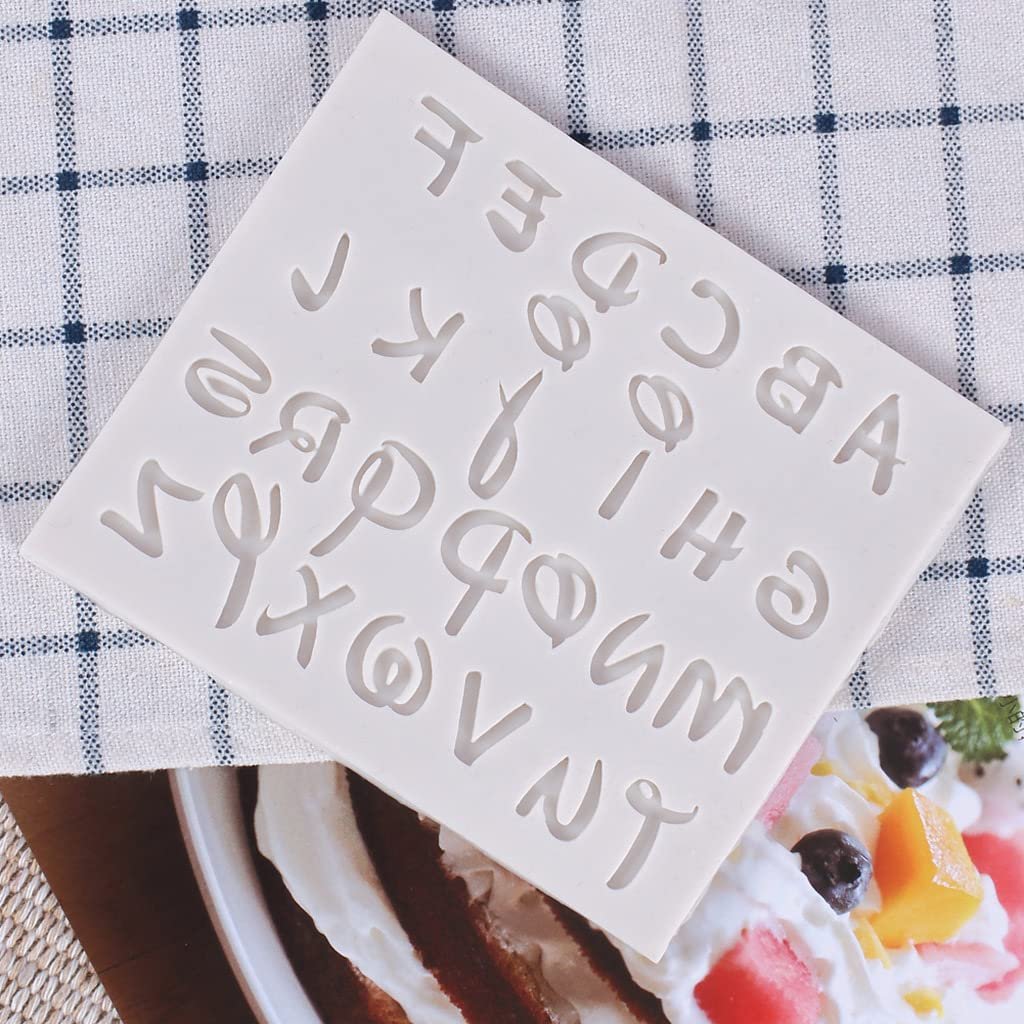 A B C D E F
O O
G H I J K L
M N O P Q R S
T U V W X Y Z